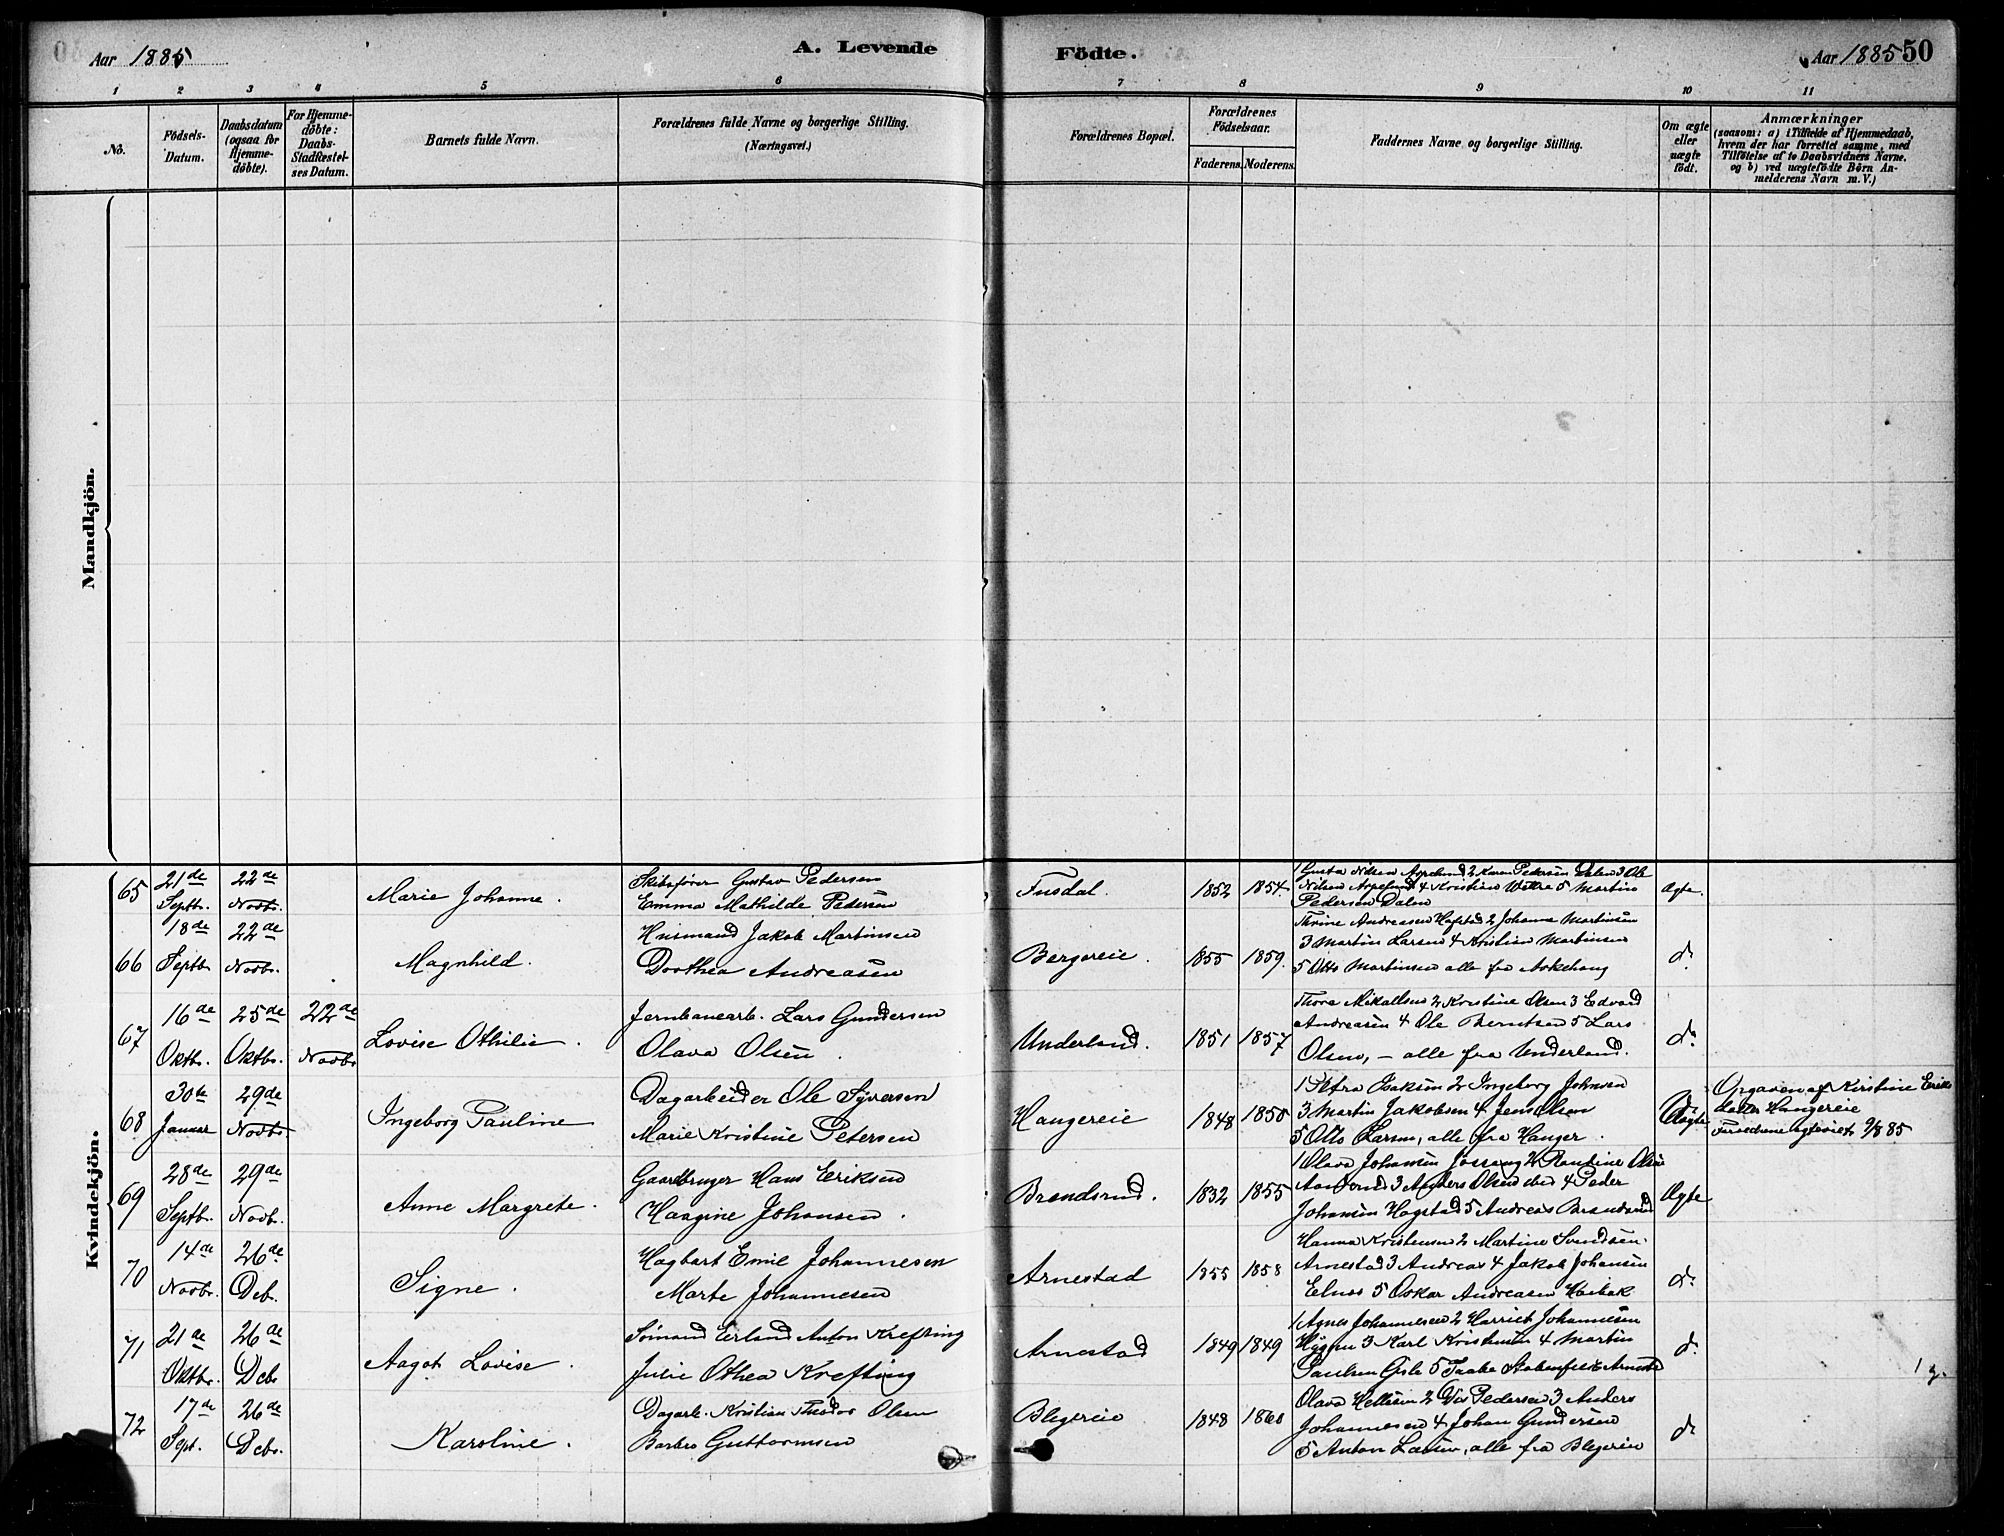 Aar 1885
A. Levende
Födte.
Aar 1885
50
1 2 3 4 5 6 7 8 9 10 11
No.
Födsels-Datum.
Daabsdatum (ogsaa for Hjemme-döbte).
For Hjemme-döbte: Daabs-Stadfæstel-ses Datum.
Barnets fulde Navn.
Forældrenes fulde Navne og borgerlige Stilling.
(Næringsvei.)
Forældrenes Bopæl.
Forældrenes Födselsaar.
Faderens. Moderens.
Faddernes Navne og borgerlige Stilling.
Om ægte eller uægte födt.
Anmærkninger
(saasom: a) i Tilfælde af Hjemmedaab,
hvem der har forrettet samme, med
Tilföielse af to Daabsvidners Navne.
og b) ved uægtefödte Börn An-
melderens Navn m. V.)
Mandkjön.
Kvindekjön.
65 21de Septb. 22de Novbr. Marie Johanne.
Skibsfører Gustav Pedersen
Emma Mathilde Pedersen
Fusdal. 1852 1854.
Nilsen 2 Karen Pedersen Dalen 3 Ole
Nilsen 4 Kristine 5 Martin
Pedersen Dalen
Ægte.
66 18de Septb. 22de Novbr. Magnhild.
Husmand Jakob Martinsen
Dorthea Andreasen
Bergereie. 1855 1859.
Thrine Andreasen Hofstad 2 Johanne Martinsen
3 Martin Larsen 4 Kristian Martinsen
5 Otto Martinsen alle fra
do
67 16de Oktbr. 25de Oktbr. 22de Novbr. Lovise Othilie.
Jernbanearb. Lars Gundersen
Olava Olsen.
Underland. 1851 1857
Thora Mikalsen 2 Kristine Olsen 3 Edvard
Andreasen 4 Ole Berntsen 5 Lars
Olsen, – alle fra Underland.
do
68 30te Januar 29de Novbr. Ingeborg Pauline
Dagarbeider Ole Syversen
Marie Kristine Petersen
Hangereie 1848 1850
1 Petra Isaksen 2 Ingeborg Johnsen
3 Martin Jakobsen 4 Jens Olsen
5 Otto Larsen, alle fra Hanger.
Uægte
Opgaven af Kirstine Eriks
datter Hangereie
Forældrene ægteviet 9/8 85
69 28de Septbr. 29de Novb. Anne Margrete.
Gaardbruger Hans Eriksen
Haagine Johansen.
Brendsrud. 1832 1855
1 Olava Johansen 2 Olsen
3 Anders Olsen ibid 4 Peder
Johansen Hogstad 5 Andreas Brendsrud
Ægte
70 14de Novbr. 26de Deb. Signe.
Hagbart Emil Johannesen
Marte Johannesen
Arnestad 1855 1858
Hanna Kristensen 2 Martine Svendsen
Arnestad 3 Andreas 4 Jakob Johansen
Elnes 5 Oskar Andreasen
do
71 21de Oktbr. 26de Deb. Aagot Lovise.
Sömand Erland Anton Krefting
Julie Othea Krefting
Arnestad 1849 1849
1 Agnes Johannesen 2 Harriet Johannesen
3 Karl Kristensen 4 Martin
Paulsen Gisle 5
do
72 17de Sept. 26de Deb. Karoline.
Dagarb. Kristian Olsen
Barbro Guttormsen
Blegereie 1848 1860
Olava 2 Pedersen 3 Anders
Johannesen 4 Johan Gundersen
5 Anton Larsen, alle fra Blegereie
do